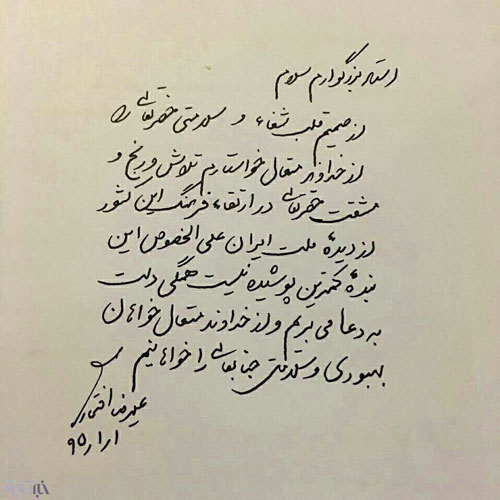 استاد بزرگوارم سلام
از صمیم قلب شفاء و سلامتی حضرتعالی را
از خداوند متعال خواستارم تلاش و رنج و
مشقت حضرتعالی در ارتقاء فرهنگ این کشور
از دیدهٔ ملت ایران علی الخصوص این
بندهٔ کمترین پوشیده نیست همگی دست
به دعا می بریم و از خداوند متعال خواهان
بهبودی و سلامتی جنابعالی را خواهانیم
علیرضا افتخاری
۱ر۱ر۹۵
خبر